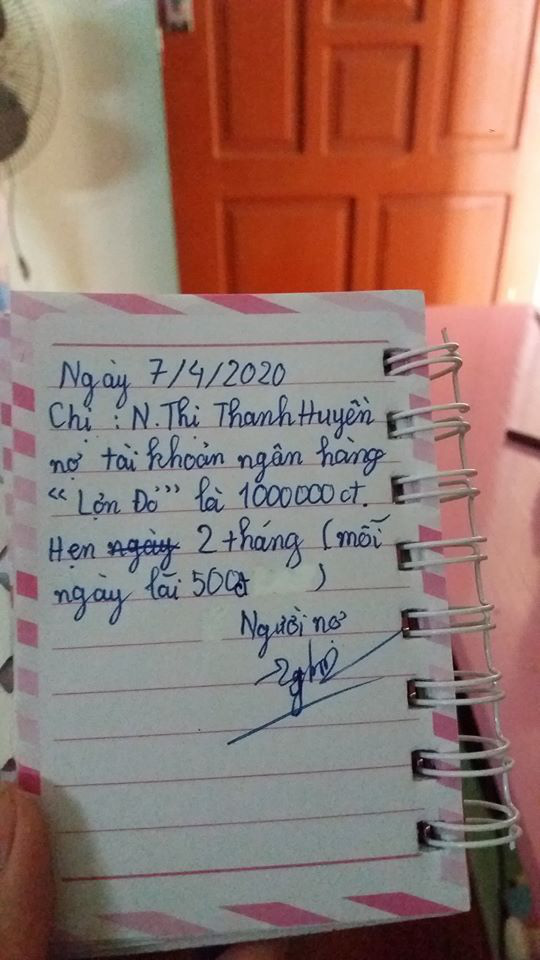 Ngày 7/4/2020
Chị : N.Thị Thanh Huyền
nợ tài khoản ngân hàng
“Lợn Đỏ” là 1000000đ.
Hẹn ngày 2 tháng (mỗi
ngày lãi 500đ )
Người nợ